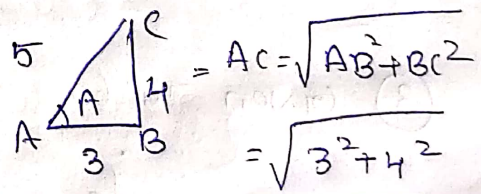 C
5
A
4
A
3
B
= AC = √AB²+BC²
= √3²+4²